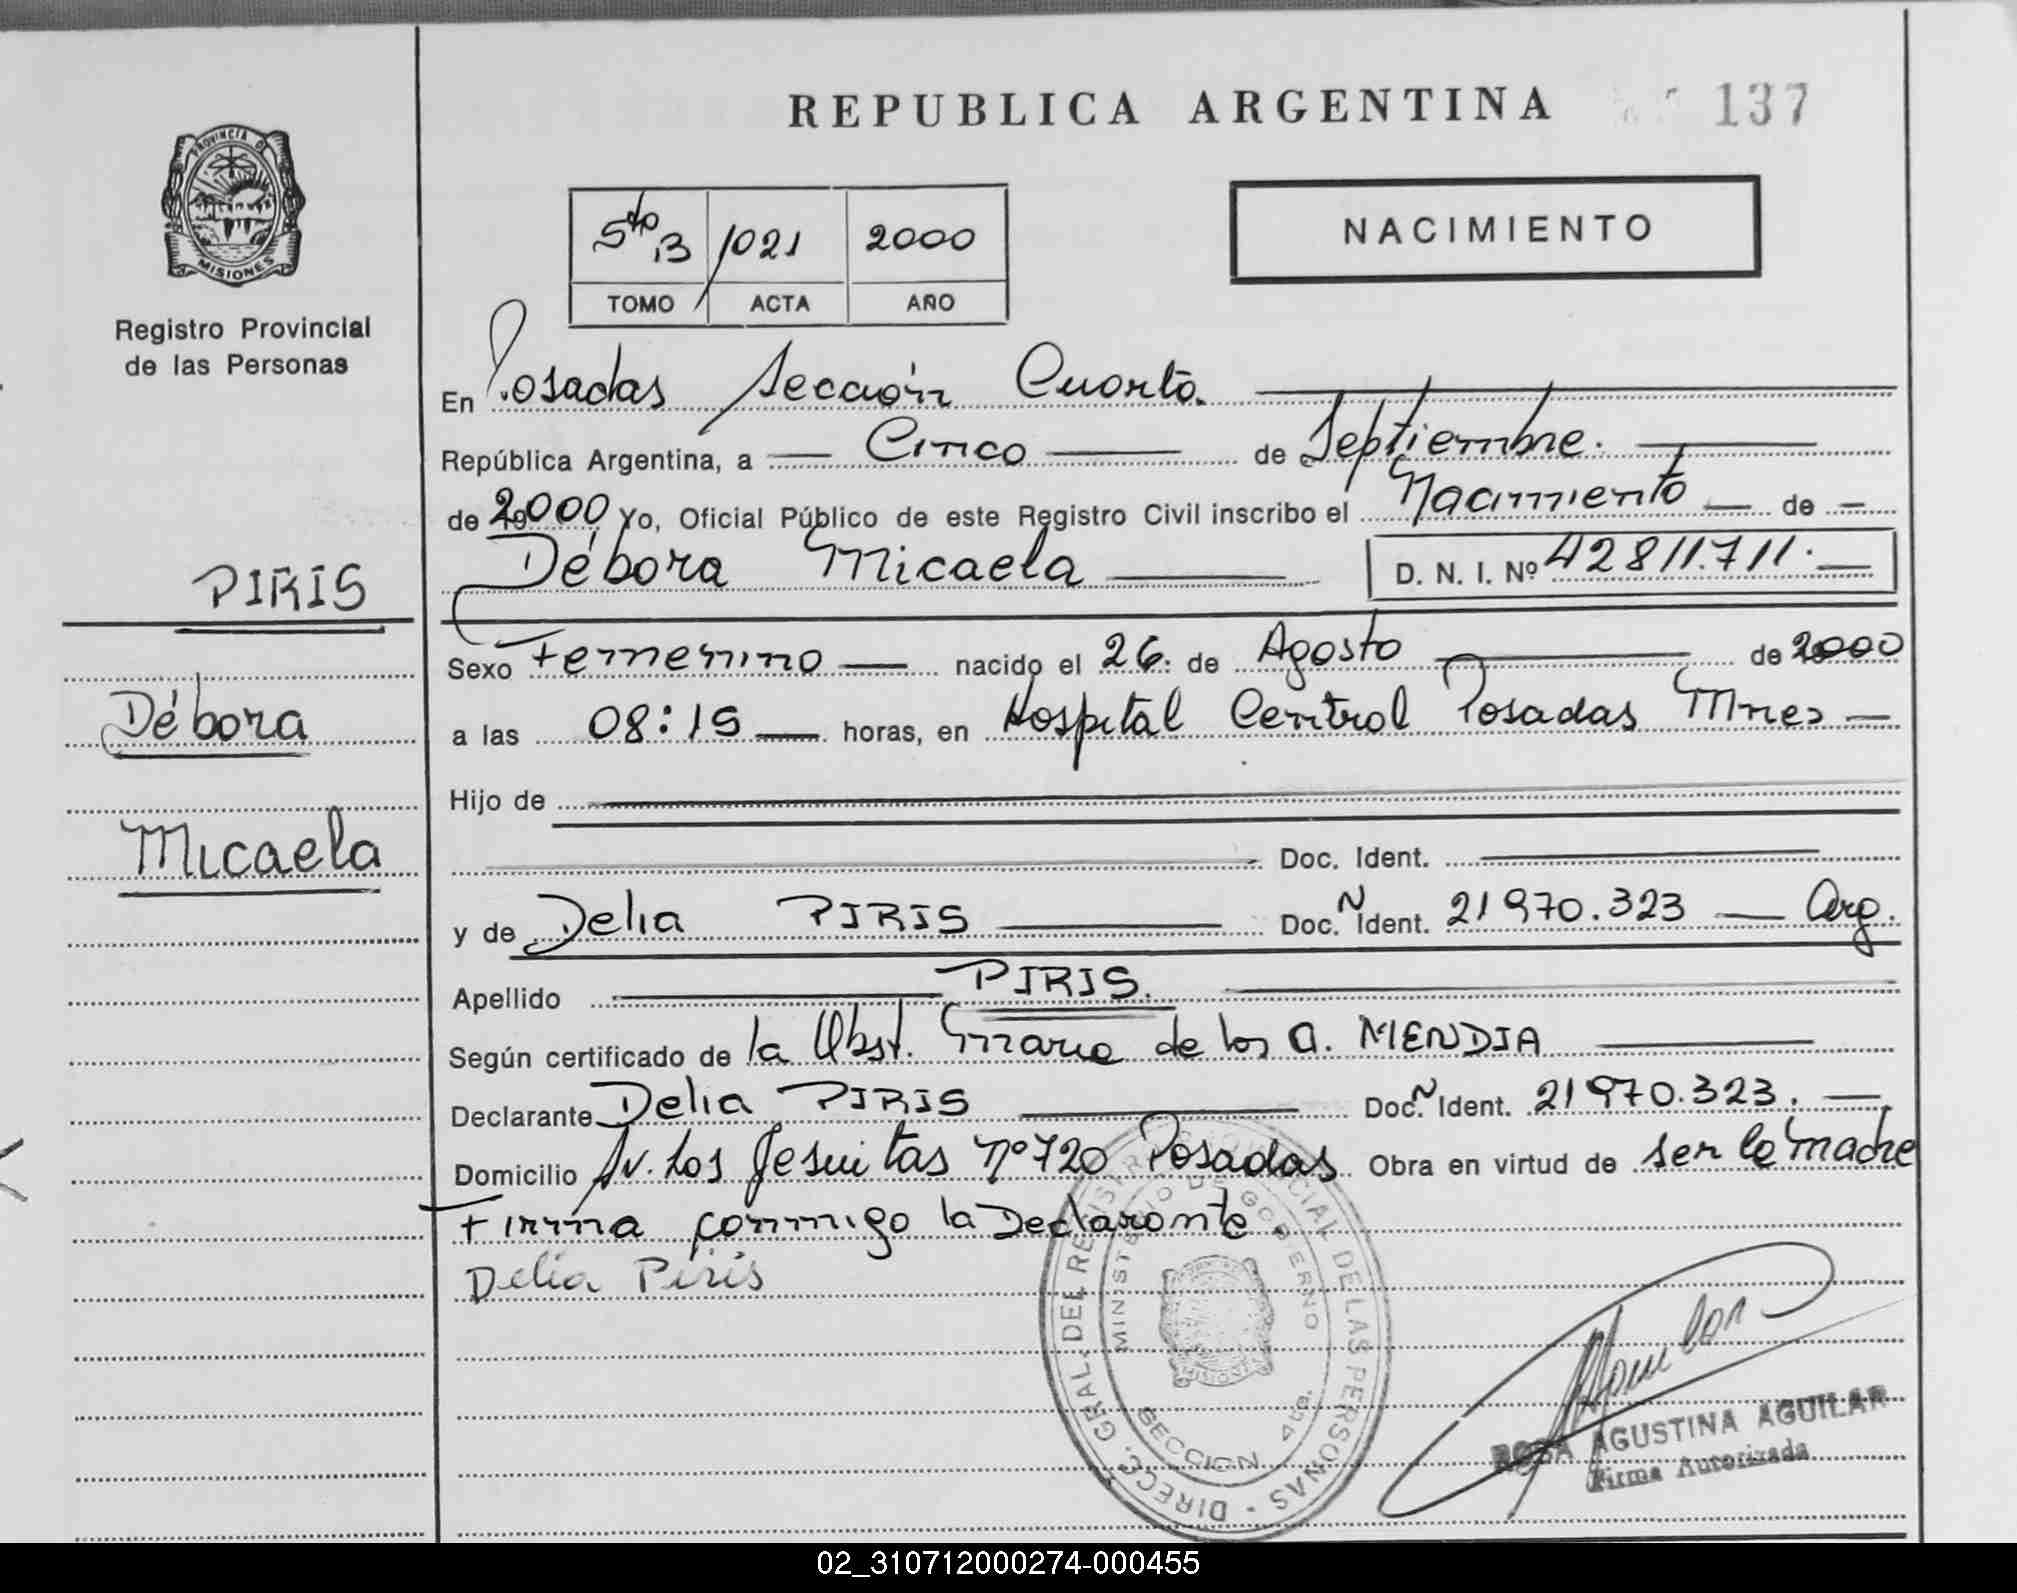 REPUBLICA ARGENTINA
137
PROVINCIA DE
MISIONES
Registro Provincial
de las Personas
5to B 1021 2000
TOMO ACTA AÑO
NACIMIENTO
En Posadas Sección Cuarta.
República Argentina, a Cinco de Septiembre.
de 2000 Yo, Oficial Público de este Registro Civil inscribo el Nacimiento de
Débora Micaela D. N. I. Nº 42811.711.
PIRIS
Débora
Micaela
Sexo Femenino nacido el 26. de Agosto de 2000
a las 08:15 horas, en Hospital Central Posadas Mnes
Hijo de
Doc. Ident.
y de Delia PIRIS Doc. N Ident. 21970.323 Arg.
Apellido PIRIS.
Según certificado de la Obst. Maria de los A. MENDIA
Declarante Delia PIRIS Doc. N Ident. 21970.323.
Domicilio Av. Los Jesuitas Nº 720 Posadas Obra en virtud de ser la madre
Firma conmigo la Declarante.
Delia Piris
DIRECC. GRAL. DEL REGISTRO PROVINCIAL DE LAS PERSONAS
MINISTERIO DE GOBIERNO
SECCION 4ta.
ROSA AGUSTINA AGUILAR
Firma Autorizada
02_310712000274-000455